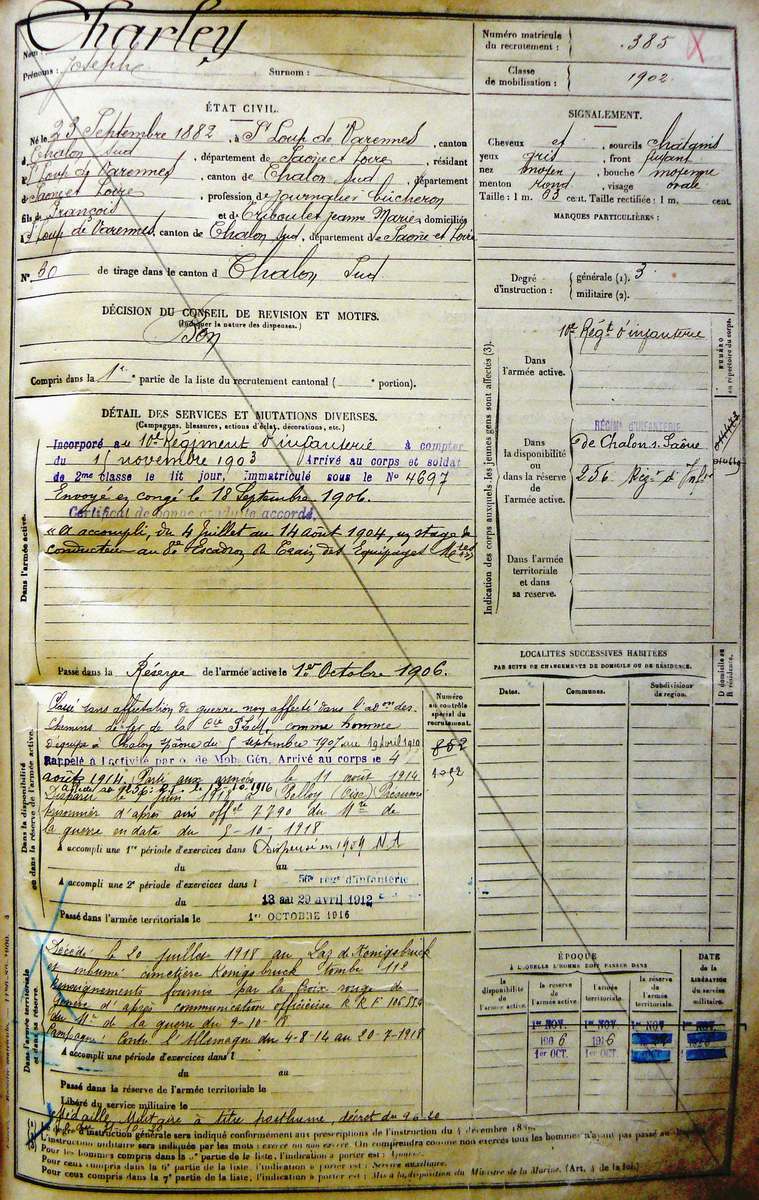 Charley
Nom :
Prénoms : Joseph Surnom :
Numéro matricule du recrutement : 385
Classe de mobilisation : 1902
ÉTAT CIVIL.
Né le 23 Septembre 1882, à St Loup de Varennes, canton
d Chalon Sud, département de Saone et Loire, résidant
à St Loup de Varennes, canton de Chalon Sud, département
de Saone et Loire, profession de Journalier bûcheron
fils de François et de Jeanne Marie, domiciliés
à St Loup de Varennes, canton de Chalon Sud, département de Saône et Loire
N° 30 de tirage dans le canton d Chalon Sud
SIGNALEMENT.
Cheveux et sourcils châtains
yeux gris, front fuyant
nez moyen, bouche moyenne
menton rond, visage ovale
Taille : 1 m. 63 cent. Taille rectifiée : 1 m. cent.
MARQUES PARTICULIÈRES :
Degré d'instruction : générale (1). 3
militaire (2).
DÉCISION DU CONSEIL DE REVISION ET MOTIFS.
(Indiquer la nature des dispenses.)
Bon
Compris dans la 1re partie de la liste du recrutement cantonal ( e portion).
DÉTAIL DES SERVICES ET MUTATIONS DIVERSES.
(Campagnes, blessures, actions d'éclat, décorations, etc.)
Dans l'armée active.
Incorporé au 10e Régiment d'infanterie à compter
du 15 novembre 1903 Arrivé au corps et soldat
de 2me classe le dit jour, Immatriculé sous le No 4697
Envoyé en congé le 18 Septembre 1906.
Certificat de bonne conduite accordé.
"A accompli, du 4 Juillet au 14 Août 1904, un stage de
conducteur au 8e Escadron du Train des Equipages
Passé dans la Réserve de l'armée active le 1er Octobre 1906.
Indication des corps auxquels les jeunes gens sont affectés (3).
NUMÉRO au répertoire du corps.
Dans l'armée active.
10e Régt d'infanterie
Dans la disponibilité ou dans la réserve de l'armée active.
RÉGIMt D'INFANTERIE
De Chalon s. Saône
256e Régt d'Infie
Dans l'armée territoriale et dans sa réserve.
LOCALITÉS SUCCESSIVES HABITÉES
PAR SUITE DE CHANGEMENTS DE DOMICILE OU DE RÉSIDENCE.
D domicile ou R résidence.
Dates. Communes. Subdivisions de région.
Numéro au contrôle spécial du recrutement.
Dans la disponibilité ou dans la réserve de l'armée active.
Classé sans affectation de guerre non affecté dans l'adon des
chemins de fer de la Cie comme homme
d'équipe à Chalon du 5 septembre 1907 au 19 avril 1910
Rappelé à l'activité par o. de Mob. Gén. Arrivé au corps le 4
août 1914. Parti aux armées le 11 août 1914
Disparu le juin 1918 à Belloy (Oise) Présumé
prisonnier d'après avis offel 7790 du Mtre de
la guerre en date du 8-10-1918
A accompli une 1re période d'exercices dans Dispensé en 1909
du au
A accompli une 2e période d'exercices dans l 56e regt d'infanterie
du 13 au 29 avril 1912
Passé dans l'armée territoriale le 1er OCTOBRE 1916
Dans l'armée territoriale et dans sa réserve.
Décédé le 20 juillet 1918 au Laz. de Königsbruck
et inhumé cimetière Königsbruck tombe 113
renseignements fournis par la Croix rouge de
Genève d'après communication officieuse
du Mre de la guerre du 9-10-18
Campagne Contre l'Allemagne du 4-8-14 au 20-7-1918
A accompli une période d'exercices dans l
du au
Passé dans la réserve de l'armée territoriale le
Libéré du service militaire le
ÉPOQUE
À LAQUELLE L'HOMME DOIT PASSER DANS
la disponibilité de l'armée active. la réserve de l'armée active. l'armée territoriale. la réserve de l'armée territoriale.
DATE de la LIBÉRATION du service militaire.
1er NOV. 1er NOV. 1er NOV 1er NOV.
1906 1916
1er OCT. 1er OCT.
Médaille Militaire à titre posthume, décret du
Le degré d'instruction générale sera indiqué conformément aux prescriptions de l'instruction du 4 décembre
Pour les hommes compris dans la
Pour ceux compris dans la 6e partie de la liste, l'indication à porter est : Service auxiliaire.
Pour ceux compris dans la 7e partie de la liste, l'indication à porter est : Mis à la disposition du Ministre de la Marine. (Art. 4 de la loi.)